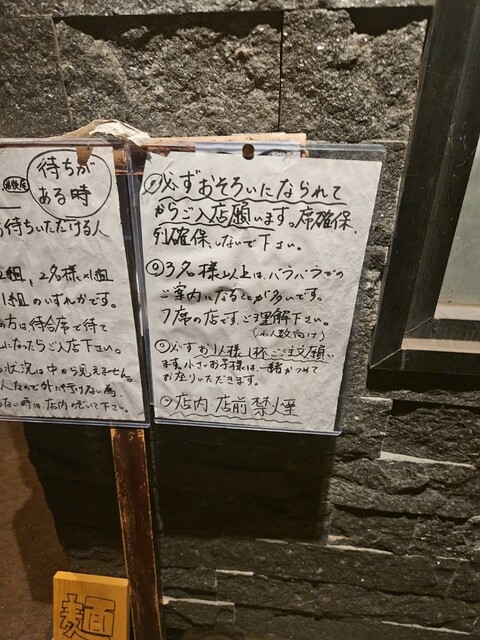 待ちが
ある時
待ちいただける人
2組、2名様×1組
1組のいずれかです。
方は待合席で待て
になったらご入店下さい。
状況は中から見えません
ない時は、店内のぞいて下さい。
必ずおそろいになられて
からご入店願います。席確保、
列確保しないで下さい。
3名様以上は、バラバラでの
ご案内になることが多いです。
7席の店です、ご理解下さい。
(少人数向け)
必ずお1人様1杯ご注文願い
ます。小さいお子様は、一緒かつめて
お座りいただきます。
店内、店前禁煙
麺